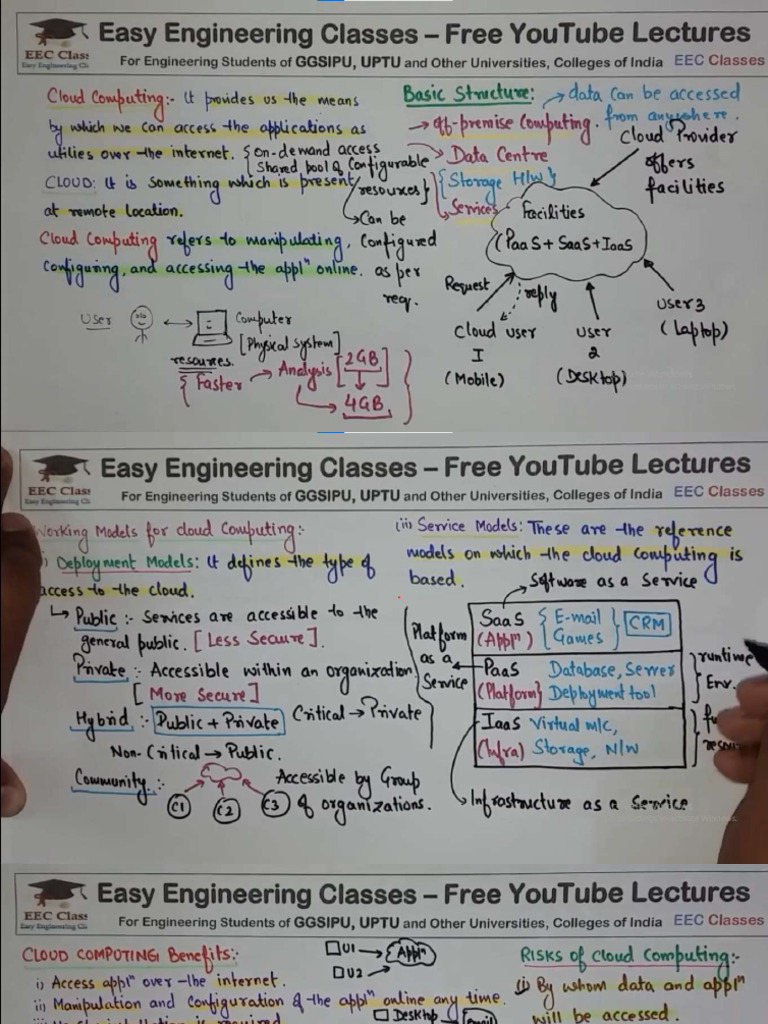 Easy Engineering Classes – Free YouTube Lectures
EEC Class
Easy Engineering Cl
For Engineering Students of GGSIPU, UPTU and Other Universities, Colleges of India EEC Classes
Cloud Computing:- It provides us the means
by which we can access the applications as
utilies over the internet. { on-demand access
Shared pool of Configurable
resources}
Can be
Configured
as per
req.
CLOUD: It is something which is present
at remote location.
Cloud Computing refers to manipulating,
configuring, and accessing the applⁿ online.
User
Computer
[Physical system]
resources.
{ Faster → Analysis [2GB]
4GB
Basic Structure: → data can be accessed
from anywhere.
→ off-premise computing.
Data Centre
{Storage H/w}
Services
Cloud Provider
offers
facilities
Facilities
(PaaS+SaaS+IaaS
Request
reply
Cloud user
I
(Mobile)
user
2
(Desktop)
user3
(Laptop)
Easy Engineering Classes – Free YouTube Lectures
EEC Class
Easy Engineering Cl
For Engineering Students of GGSIPU, UPTU and Other Universities, Colleges of India EEC Classes
Working Models for cloud Computing:-
i) Deployment Models: It defines the type of
access to the cloud.
↳ Public :- Services are accessible to the
general public. [Less Secure].
Private :- Accessible within an organization
[More Secure]
Hybrid :- Public + Private Critical → Private
Non-Critical → Public.
Community :- Accessible by Group
of organizations.
C1 C2 C3
(ii) Service Models: These are the reference
models on which the cloud computing is
based.
Software as a Service
SaaS { E-mail
(Applⁿ) Games } CRM
Platform
as a
Service
PaaS Database, Server
(Platform) Deployment tool
runtime
Env.
IaaS Virtual m/c,
(Infra) Storage, N/W
Infrostructure as a Service
Easy Engineering Classes – Free YouTube Lectures
EEC Class
Easy Engineering Cl
For Engineering Students of GGSIPU, UPTU and Other Universities, Colleges of India EEC Classes
CLOUD COMPUTING Benefits:-
U1 → Applⁿ
U2
i) Access applⁿ over the internet.
ii) Manipulation and Configuration of the applⁿ online any time.
Desktop
Email
RISKS of cloud Computing:-
(i) By whom data and applⁿ
will be accessed.